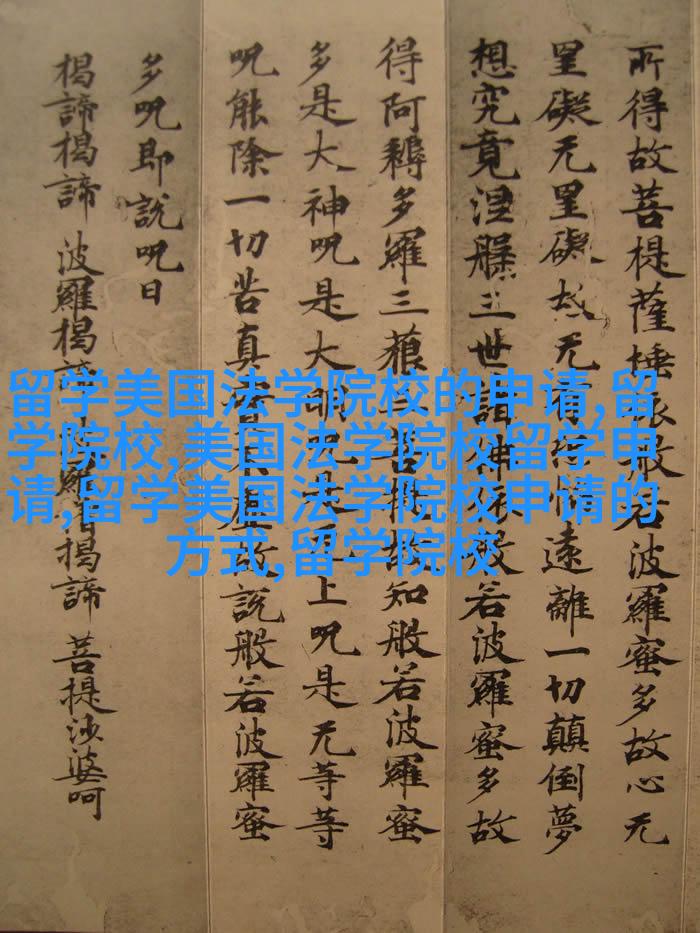 所得故菩提薩埵依般若波羅蜜多故心无
罣礙无罣礙故无有恐怖遠離一切顛倒夢
想究竟涅槃三世諸佛依般若波羅蜜多故
得阿耨多羅三藐三菩提故知般若波羅蜜
多是大神呪是大明呪是无上呪是无等等
呪能除一切苦真實不虛故說般若波羅蜜
多呪即說呪曰
揭諦揭諦 波羅揭諦 波羅僧揭諦 菩提沙婆呵
留学美国法学院校的申请,留
学院校,美国法学院校留学申
请,留学美国法学院校申请的
方式,留学院校